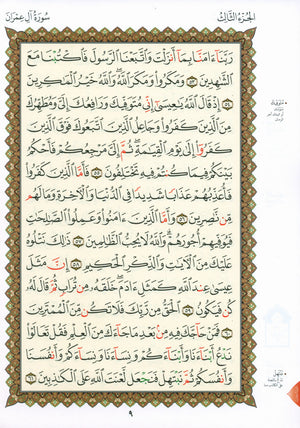 الجزء الثالث
سورة آل عمران
ربنا ءامنا بما أنزلت واتبعنا الرسول فاكتبنا مع
الشهدين ٥٣ ومكروا ومكر الله والله خير المكرين
٥٤ إذ قال الله يعيسى إني متوفيك ورافعك إلي ومطهرك
من الذين كفروا وجاعل الذين اتبعوك فوق الذين
كفروا إلى يوم القيمة ثم إلي مرجعكم فأحكم
بينكم فيما كنتم فيه تختلفون ٥٥ فأما الذين كفروا
فأعذبهم عذابا شديدا في الدنيا والآخرة وما لهم
من نصرين ٥٦ وأما الذين ءامنوا وعملوا الصلحت
فيوفيهم أجورهم والله لا يحب الظلمين ٥٧ ذلك نتلوه
عليك من الآيت والذكر الحكيم ٥٨ إن مثل
عيسى عند الله كمثل ءادم خلقه من تراب ثم قال له
كن فيكون ٥٩ الحق من ربك فلا تكن من الممترين
٦٠ فمن حاجك فيه من بعد ما جاءك من العلم فقل تعالوا
ندع أبناءنا وأبناءكم ونساءنا ونساءكم وأنفسنا
وأنفسكم ثم نبتهل فنجعل لعنت الله على الكذبين ٦١
متوفيك
نبتهل
٩